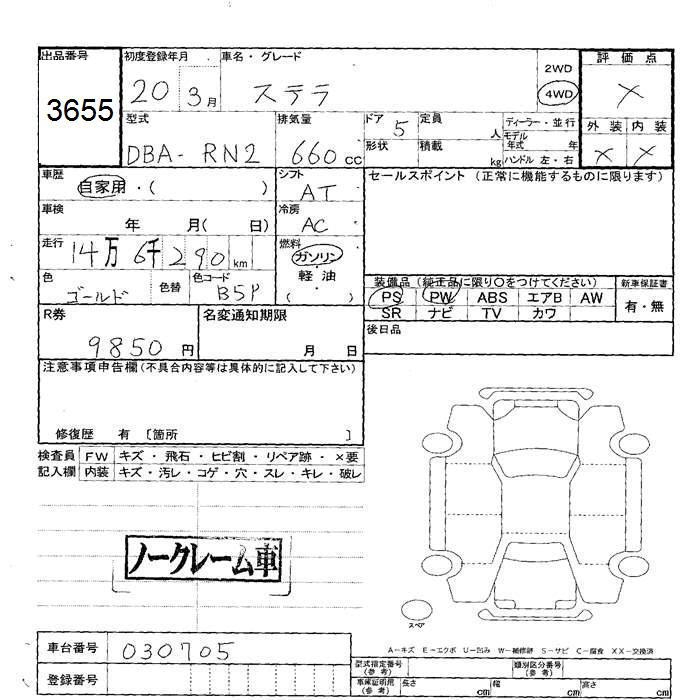 出品番号 初度登録年月 車名・グレード 2WD 評価点
3655 20 3月 ステラ 4WD ×
型式 排気量 ドア 定員 ディーラー・並行 外装 内装
5 人 モデル
DBA- RN2 660cc 形状 積載 年式 年 × ×
kg ハンドル 左・右
車歴 シフト セールスポイント (正常に機能するものに限ります)
自家用・( ) AT
車検 冷房
年 月( 日) AC
走行 燃料
14万 6千 290 km ガソリン
色 色替 色コード 軽・油 装備品 (純正品に限り○をつけてください) 新車保証書
ゴールド B5P ( ) PS PW ABS エアB AW 有・無
R券 名変通知期限 SR ナビ TV カワ
9850円 月 日 後日品
注意事項申告欄(不具合内容等は具体的に記入して下さい)
修復歴 有 〔箇所 〕
検査員 FW キズ・飛石・ヒビ割・リペア跡・×要
記入欄 内装 キズ・汚レ・コゲ・穴・スレ・キレ・破レ
ノークレーム車
スペア
車台番号 030705
A−キズ E−エクボ U−凹み W−補修跡 S−サビ C−腐食 XX−交換済
登録番号 型式指定番号 (参考) 類別区分番号 (参考)
車庫証明用 (参考) 長さ cm 幅 cm 高さ cm